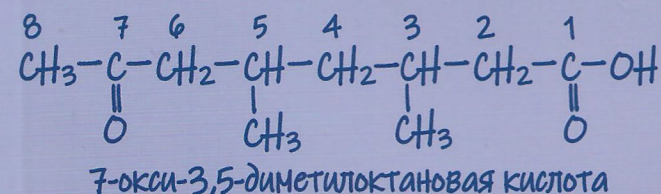 8 7 6 5 4 3 2 1
CH3–C–CH2–CH–CH2–CH–CH2–C–OH
O CH3 CH3 O
7-окси-3,5-диметилоктановая кислота